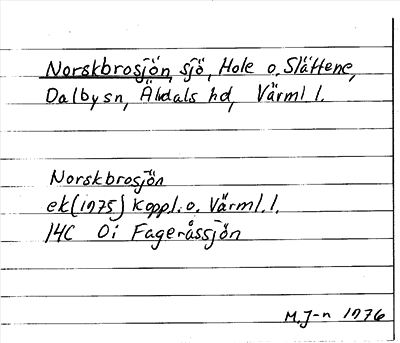 Norskbrosjön, sjö, Hole o. Slättene,
Dalby sn, Älvdals hd, Värml. l.
Norskbrosjön
ek (1975) Koppl. o. Värml. l.
14C Oi Fageråssjön
M. J-n 1976